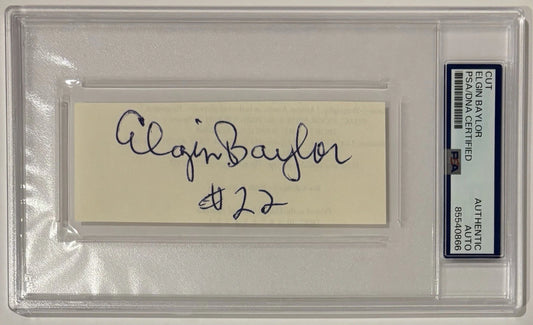 Elgin Baylor
#22
CUT
ELGIN BAYLOR
PSA/DNA CERTIFIED
PSA
AUTHENTIC
AUTO
85540866